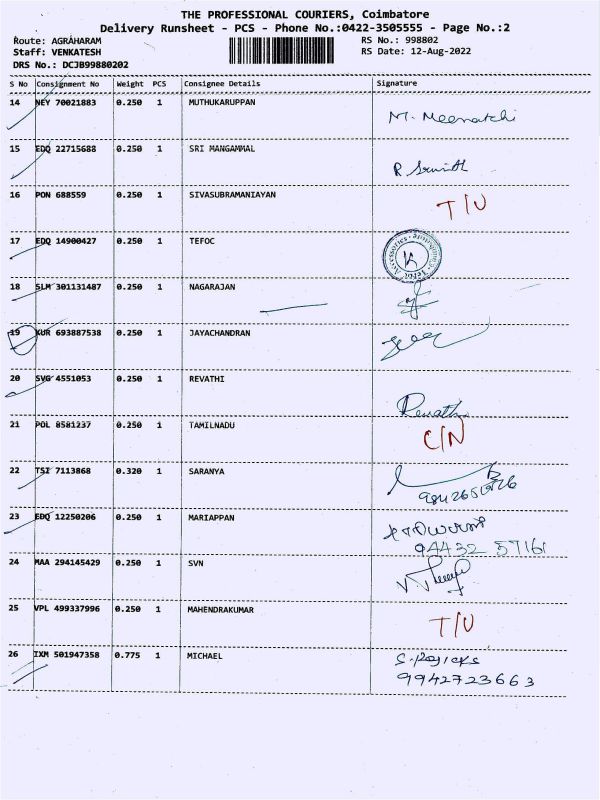 THE PROFESSIONAL COURIERS, Coimbatore
Delivery Runsheet - PCS - Phone No.:0422-3505555 - Page No.:2
Route: AGRAHARAM
Staff: VENKATESH
DRS No.: DCJB99880202
RS No.: 998802
RS Date: 12-Aug-2022
S No Consignment No Weight PCS Consignee Details Signature
14 NEY 70021883 0.250 1 MUTHUKARUPPAN M. Meenatchi
15 EDQ 22715688 0.250 1 SRI MANGAMMAL R
16 PON 688559 0.250 1 SIVASUBRAMANIAYAN T/U
17 EDQ 14900427 0.250 1 TEFOC
18 SLM 301131487 0.250 1 NAGARAJAN
19 KUR 693887538 0.250 1 JAYACHANDRAN
20 SVG 4551053 0.250 1 REVATHI Revathi
21 POL 8581237 0.250 1 TAMILNADU C/N
22 TSI 7113868 0.320 1 SARANYA
23 EDQ 12250206 0.250 1 MARIAPPAN
94432 57161
24 MAA 294145429 0.250 1 SVN
25 VPL 499337996 0.250 1 MAHENDRAKUMAR T/U
26 IXM 501947358 0.775 1 MICHAEL
9942723663